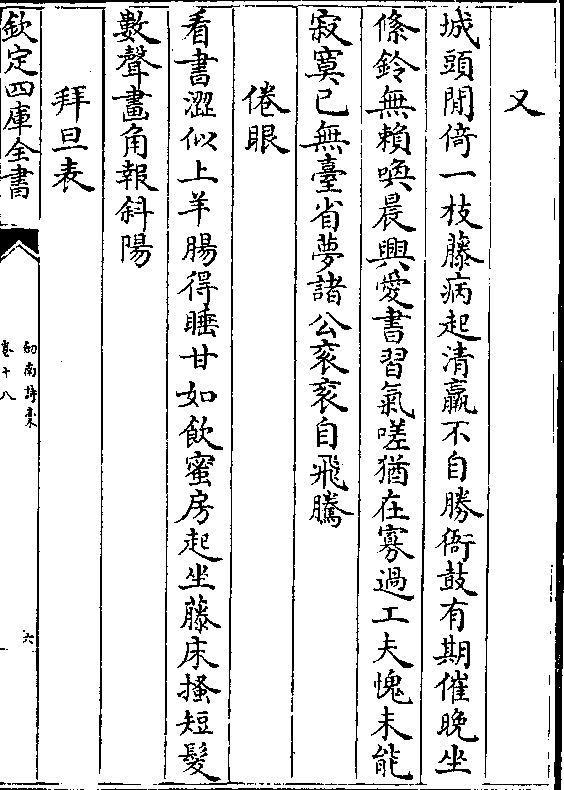 又
城頭閒倚一枝藤病起清羸不自勝衙鼓有期催晚坐
絛鈴無賴喚晨興愛書習氣嗟猶在寡過工夫愧未能
寂寞已無臺省夢諸公衮衮自飛騰
倦眼
看書澀似上羊腸得睡甘如飲蜜房起坐藤床搔短髮
數聲畫角報斜陽
拜旦表
欽定四庫全書
劍南詩稾
卷十八
六